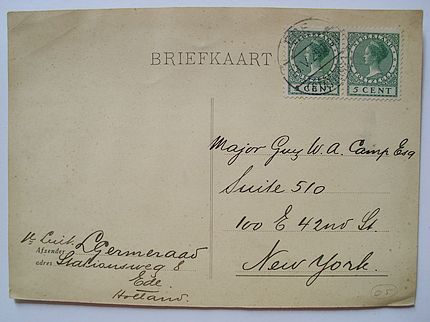 BRIEFKAART
NEDERLAND
5 CENT
NEDERLAND
5 CENT
EDE
Major Guy W. A. Camp Esq
Suite 510
100 E 42nd St.
New York.
Germeraad
Afzender
Stationsweg 8
adres
Ede.
Holland.
05